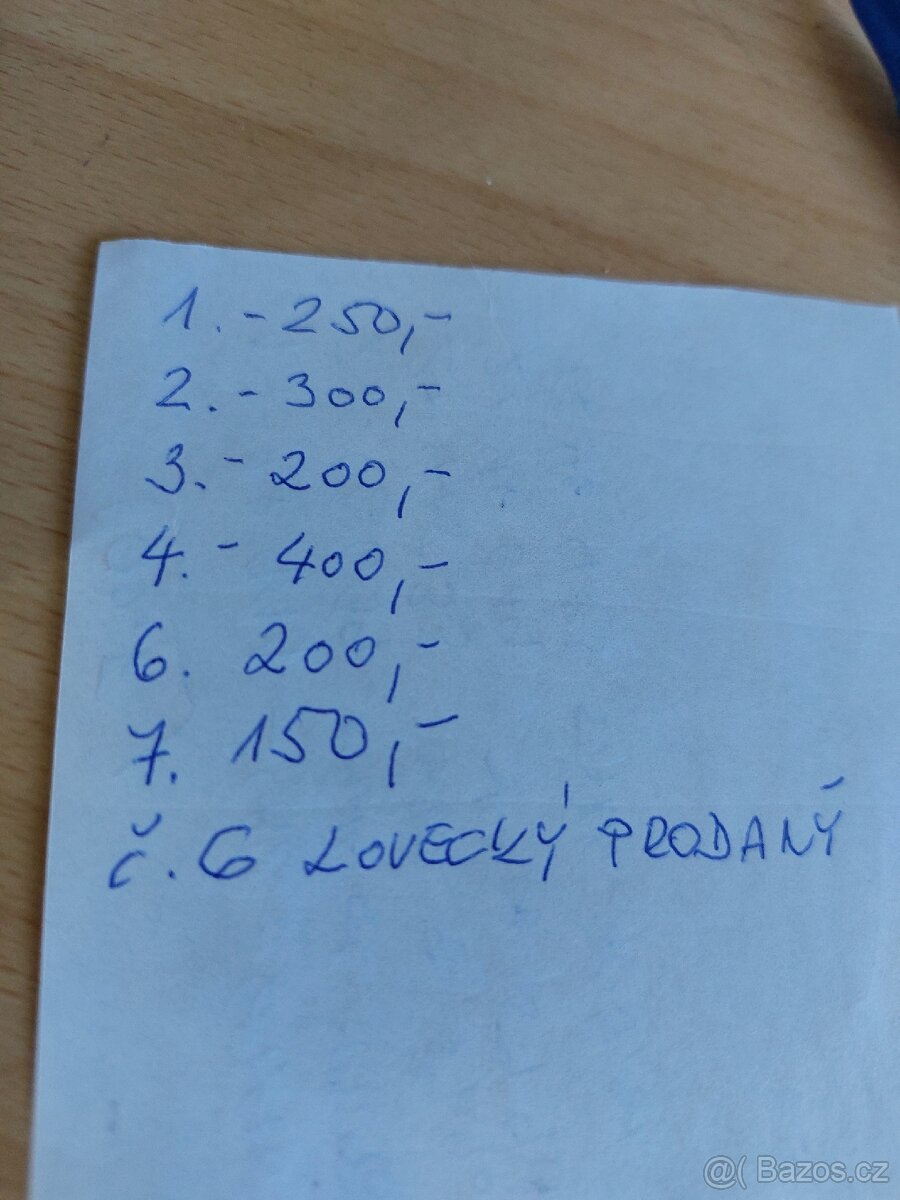 1. - 250,-
2. - 300,-
3. - 200,-
4. - 400,-
6. 200,-
7. 150,-
č. 6 LOVECKÝ PRODANÝ
@( Bazos.cz